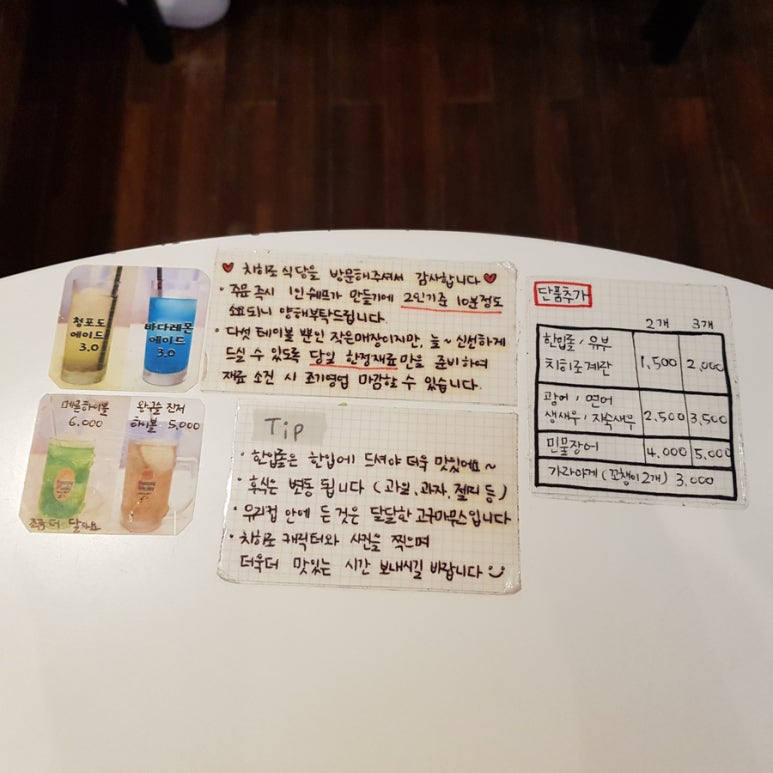 청포도
에이드
3.0
바다레몬
에이드
3.0
메론하이볼
6,000
왕구슬 진저
하이볼 5,000
조금 더 달아요
♥ 치히로 식당을 방문해주셔서 감사합니다 ♥
· 주문 즉시 1인 쉐프가 만들기에 2인기준 10분정도
소요되니 양해부탁드립니다.
· 다섯 테이블 뿐인 작은매장이지만, 늘~ 신선하게
드실 수 있도록 당일 한정재료만을 준비하여
재료 소진 시 조기영업 마감할 수 있습니다.
Tip
· 한입롤은 한입에 드셔야 더욱 맛있어요~
· 후식은 변동 됩니다 (과일, 과자, 젤리 등)
· 유리컵 안에 든 것은 달달한 고구마무스입니다
· 치히로 캐릭터와 사진을 찍으며
더욱더 맛있는 시간 보내시길 바랍니다
단품추가
2개 3개
한입롤 / 유부
치히로계란 1,500 2,000
광어 / 연어
생새우 / 자숙새우 2,500 3,500
민물장어 4,000 5,000
가라아게 (꼬챙이 2개) 3,000